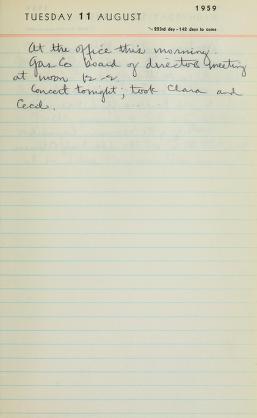 1959
TUESDAY 11 AUGUST
223rd day - 142 days to come
At the office this morning.
Gas Co board of directors meeting
at noon 12-2.
Concert tonight; took Clara and
Cecil.